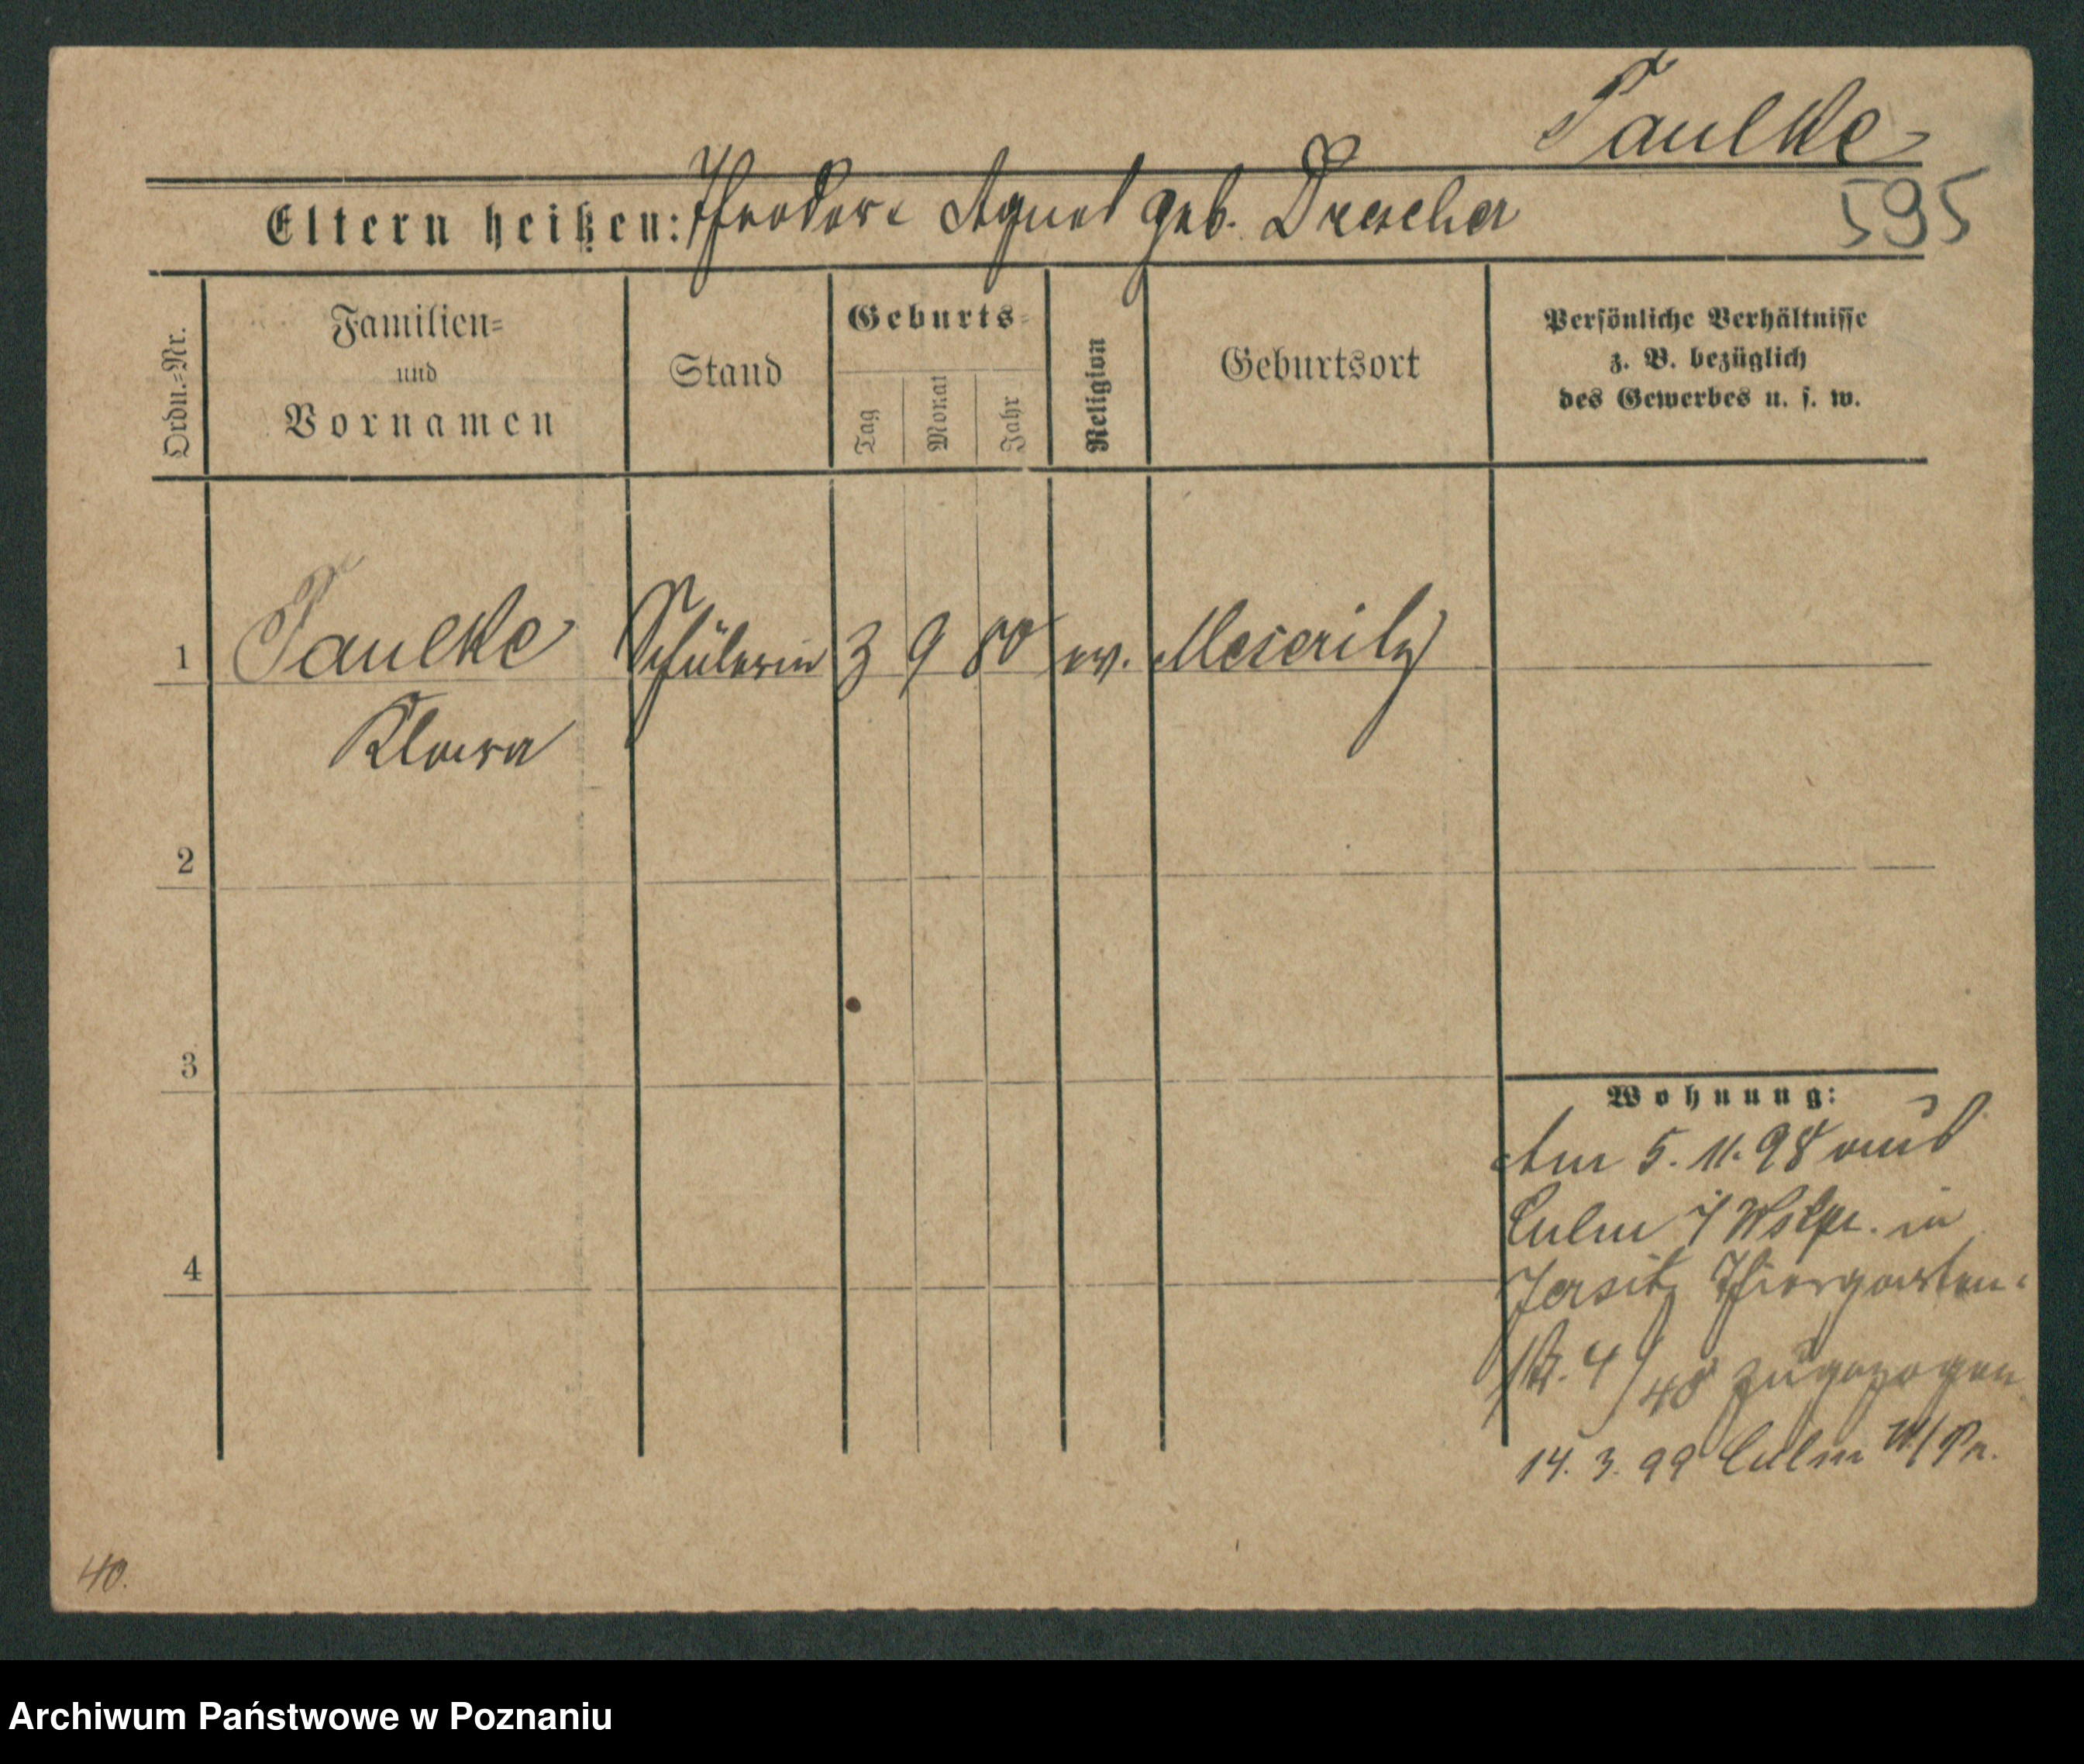 Paulke
595
Eltern heißen: Theodor u Agnes geb. Drescher
Ordn.-Nr.
Familien-
und
Vornamen
Stand
Geburts-
Tag
Monat
Jahr
Religion
Geburtsort
Persönliche Verhältnisse
z. B. bezüglich
des Gewerbes u. s. w.
1 Paulke Schülerin 3 9 80 ev. Meseritz
Klara
2
3
Wohnung:
Am 5. 11. 98 aus
Culm i/ Wstpr. in
4
Jersitz Thiergarten-
str. 4/ zugezogen
14. 3. 99 Culm W/Pr.
40.
Archiwum Państwowe w Poznaniu